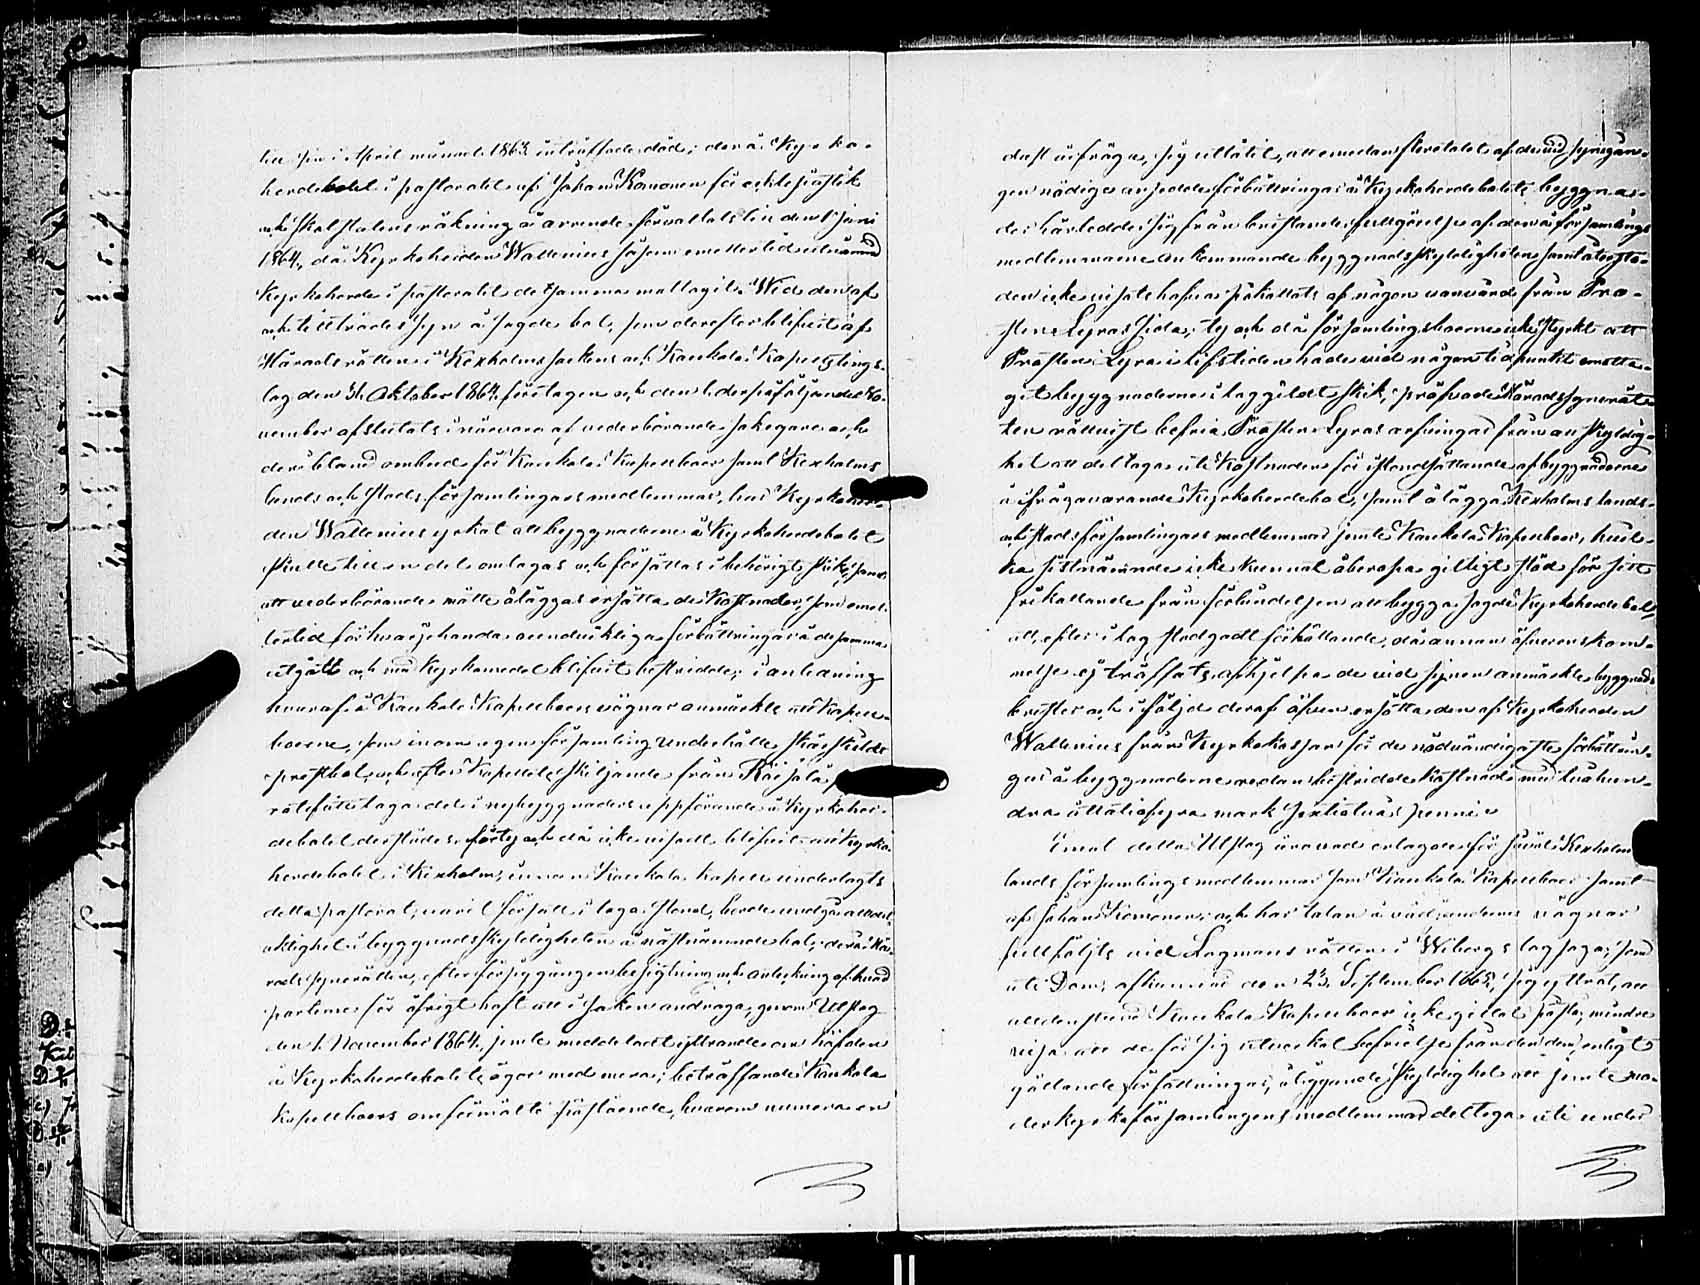 till sin i April månad 1863 inträffade död; derå Kyrko-
herdebolet i pastoratet af Johan Komonen för ecklesiastik
och Skolstatens räkning å arrende förvaltats till den 1 Juni
1864, då Kyrkoherden Wallenius såsom emellertid utnämnd
Kyrkoherde i pastoratet detsamma mottagit. Wid den af-
och tillträdes syn å sagde bol, som derefter blifvit af
Häradsrätten i Kexholms sockens och Kaukola Kapells tings-
lag den 31 Oktober 1864 företagen och den 1 derpåföljande No-
vember afslutats i närvaro af vederbörande sakegare och
deribland ombud för Kaukola Kapellboer samt Kexholms
lands och stads församlingars medlemmar, har Kyrkoher-
den Wallenius yrkat att byggnaderne å Kyrkoherdebolet
skulle till en del omlagas och försättas i behörigt skick, samt
att vederbörande måtte åläggas ersätta de kostnader, som emel-
lertid för hvarjehanda oundvikliga förbättringar å desamma
utgått och med Kyrkomedel blifvit bestridde; i anledning
hvaraf å Kaukola Kapellboers vägnar anmärkts att Kapell-
boerne, som inom egen församling underhålla särskildt
prestbol, och efter Kapellets skiljande från Räisälä
rätefått taga del i nybyggnaders uppförande å Kyrkoher-
debolet derstädes, förty och då icke visadt blifvit att Kyrko-
herdebolet i Kexholm, innan Kaukola kapell underlagts
detta pastorat, varit försatt i laga stånd, borde undgå all del-
aktighet i byggnadsskyldigheten å nästnämnde bol; derå Hä-
rads synerätten, efter försiggången besigtning och anteckning af hvad
parterne för öfrigt haft att i saken andraga, genom Utslag
den 1 November 1864, jemte meddeladt yttrande om häfden
å Kyrkoherdebolets ägor med mera, beträffande Kaukola
Kapellboers omförmälte påstående, hvarom numera en-
dast är fråga, sig utlåtit, att emedan flertalet af de vid syne gån-
gen nödige ansedde förbättringar å Kyrkoherdebolets byggna-
der härledde sig från bristande fullgörelse af den å församlings
medlemmarne ankommande byggnadsskyldigheten samt återsto-
den icke visats hafva påkallats af någon vanvård från Pro-
sten Lyras sida, ty och då församlingsboerne icke styrkt att
Prosten Lyra i lifstiden hade vid någon tidpunkt emotta-
git byggnaderne i laggildt skick, pröfvade Härads synerät-
ten rättvist befria Prosten Lyras arfvingar från an skyldig-
het att deltaga uti kostnaden för iståndsättande af byggnaderne
å ifrågavarande Kyrkoherdebol, samt ålägga Kexholms lands-
och stadsförsamlingars medlemmar jemte Kaukola Kapellboer, hvil-
ka sistnämnde icke kunnat åberopa giltigt stöd för sitt
frikallande från förbindelsen att bygga sagde Kyrkoherdebol,
att, efter i lag stadgadt förhållande, då annan öfverenskom-
melse ej träffats, afhjelpa de vid synen anmärkte byggnads
brister och i följd deraf äfven ersätta den af Kyrkoherden
Wallenius från Kyrkokassan för de nödvändigaste förbättrin-
gar å byggnaderne redan bestridde kostnad med tvåhun-
dra åttatiofyra mark sextiotvå penni.
Emot detta Utslag är vad erlagdt för såväl Kexholms
lands församlings medlemmar som Kaukola Kapellboer samt
af Johan Komonen, och har talan å vadjandenes vägnar
fullföljts vid Lagmansrätten i Wiborgs lagsaga, som
uti Dom, afkunnad den 23 September 1865, sig yttrat, att
alldenstund Kaukola Kapellboer icke gittat påstå, mindre
visa att de för sig utverkat befrielse från den dem, enligt
gällande författningar, åliggande skyldighet att jemte mo-
derkyrkoförsamlingens medlemmar deltaga uti under-